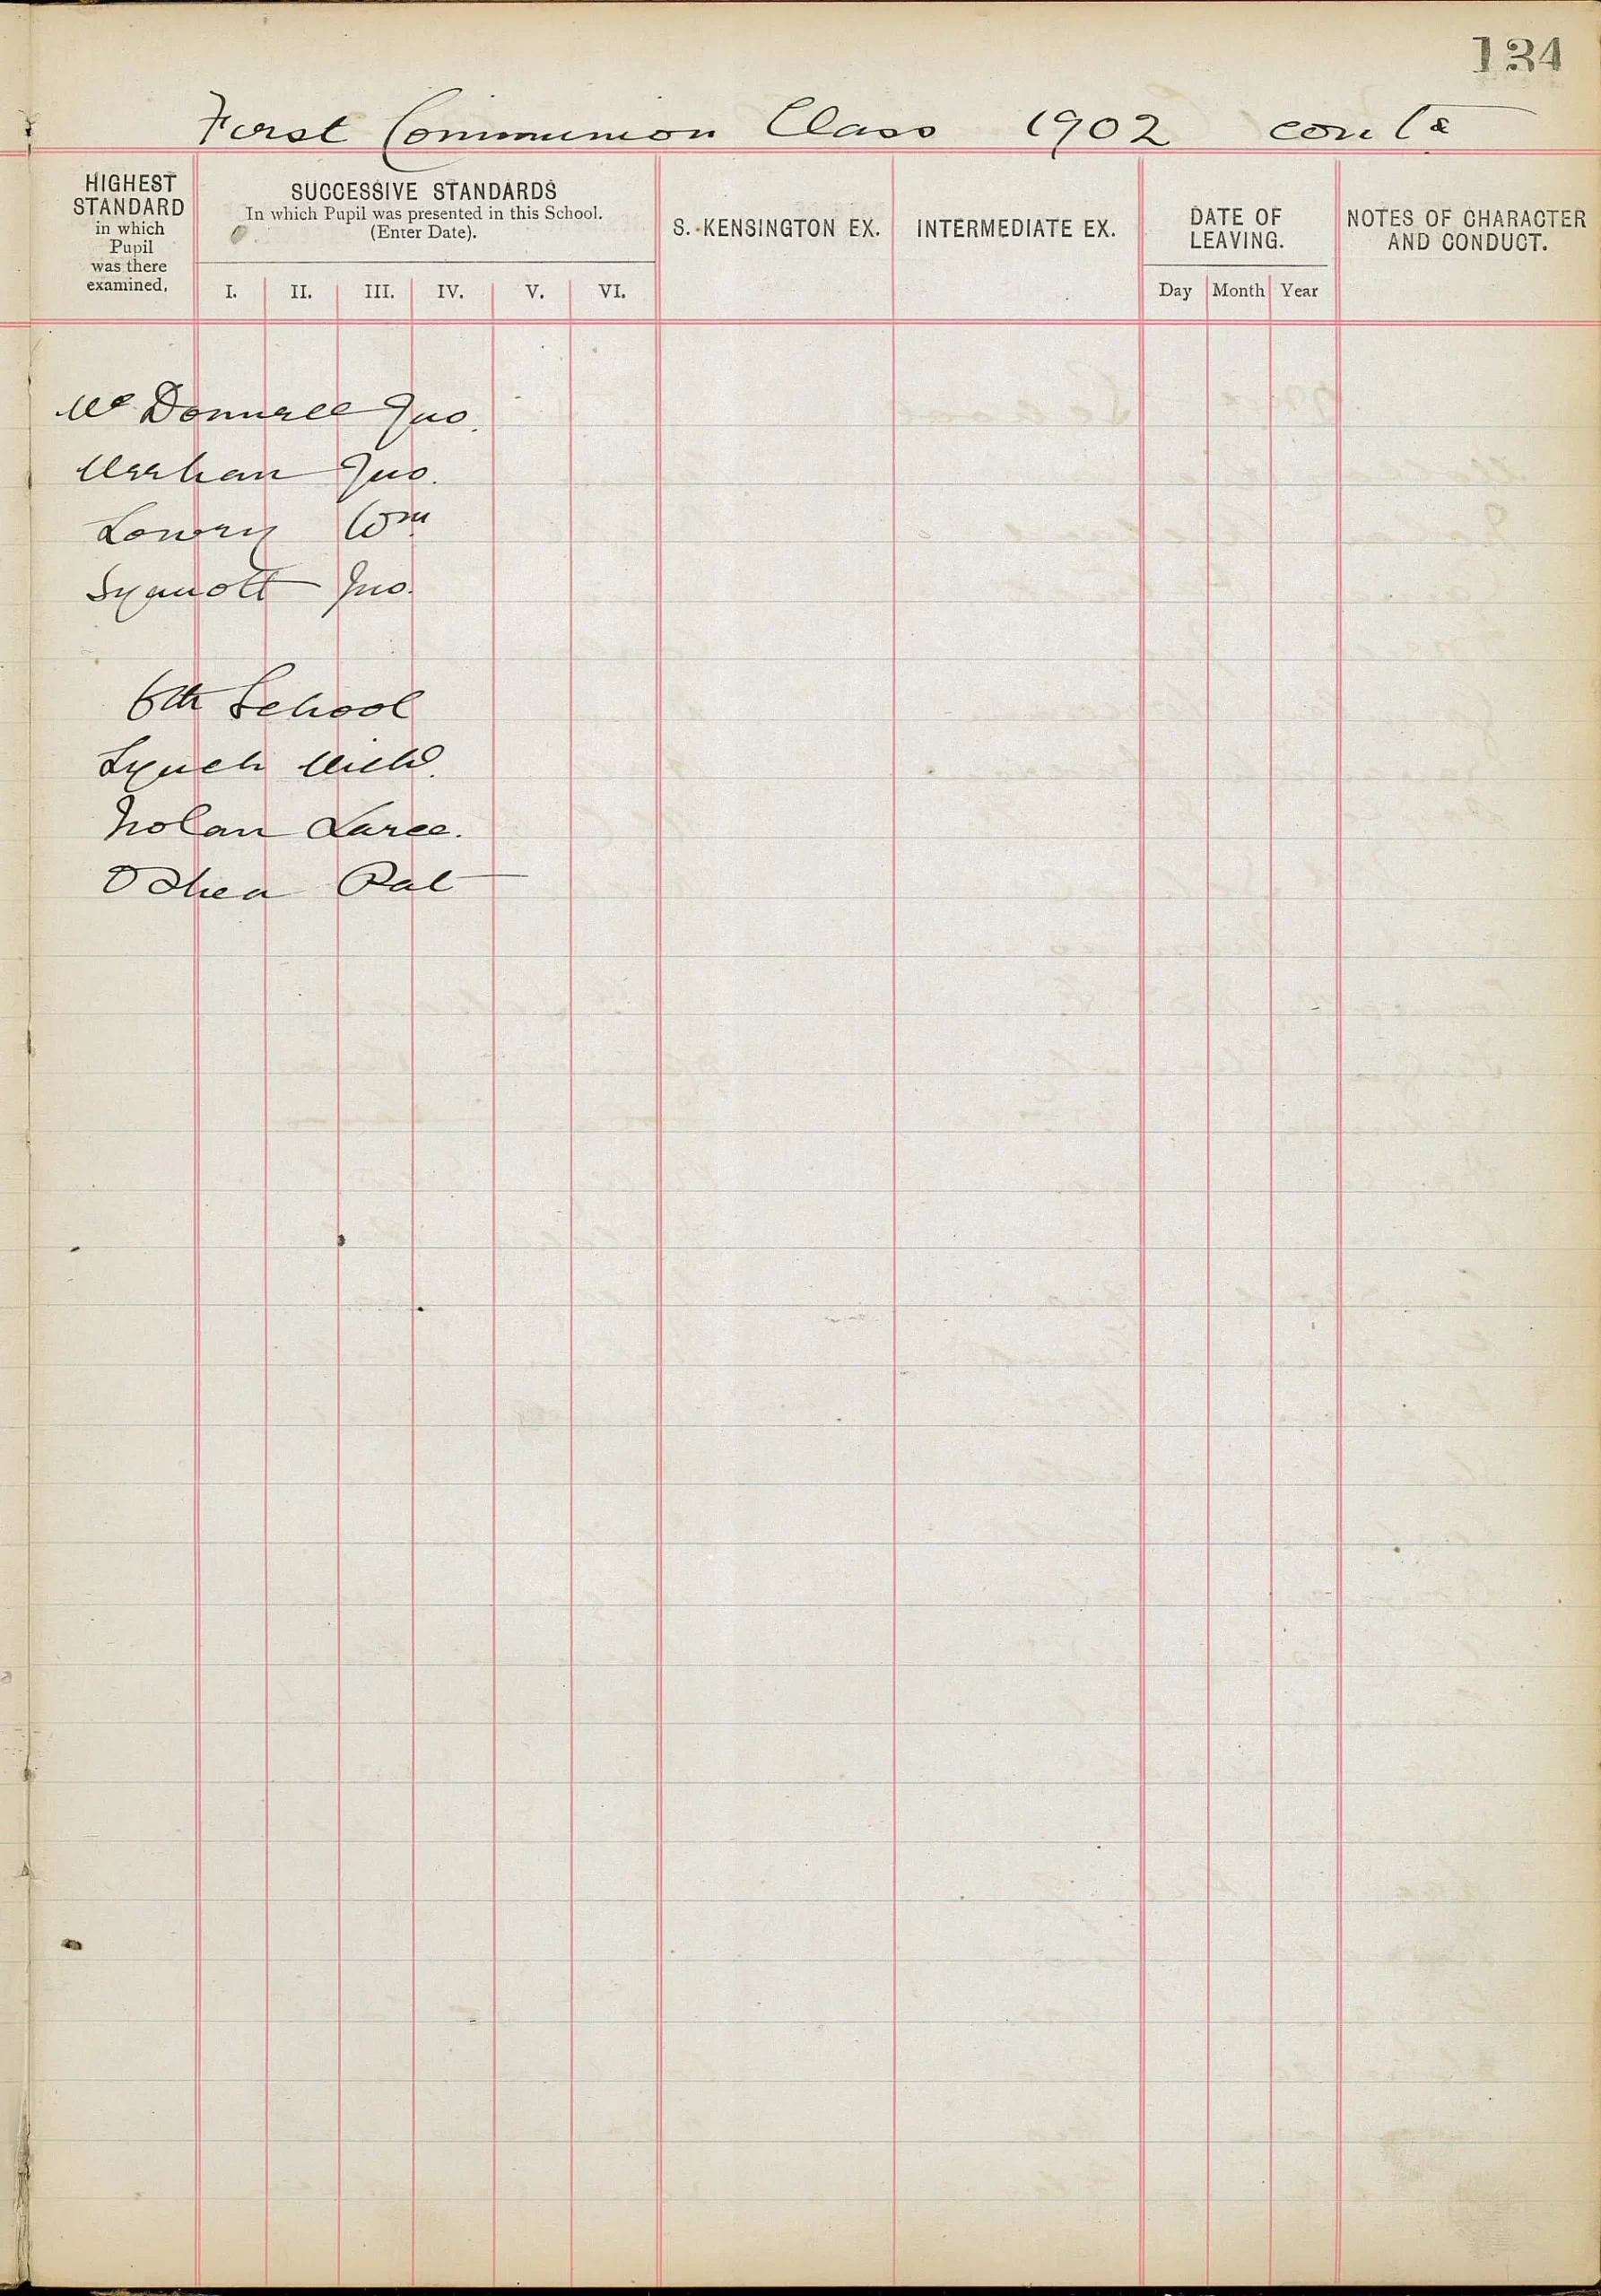 134
First Communion Class 1902 contd
HIGHEST
STANDARD
in which
Pupil
was there
examined.
SUCCESSIVE STANDARDS
In which Pupil was presented in this School.
(Enter Date).
I. II. III. IV. V. VI.
S. KENSINGTON EX.
INTERMEDIATE EX.
DATE OF
LEAVING.
Day Month Year
NOTES OF CHARACTER
AND CONDUCT.
Mc Donnell Jno.
Meehan Jno.
Lowry Wm
Synnott Jno.
6th School
Lynch Michl.
Nolan Larce.
O Shea Pat